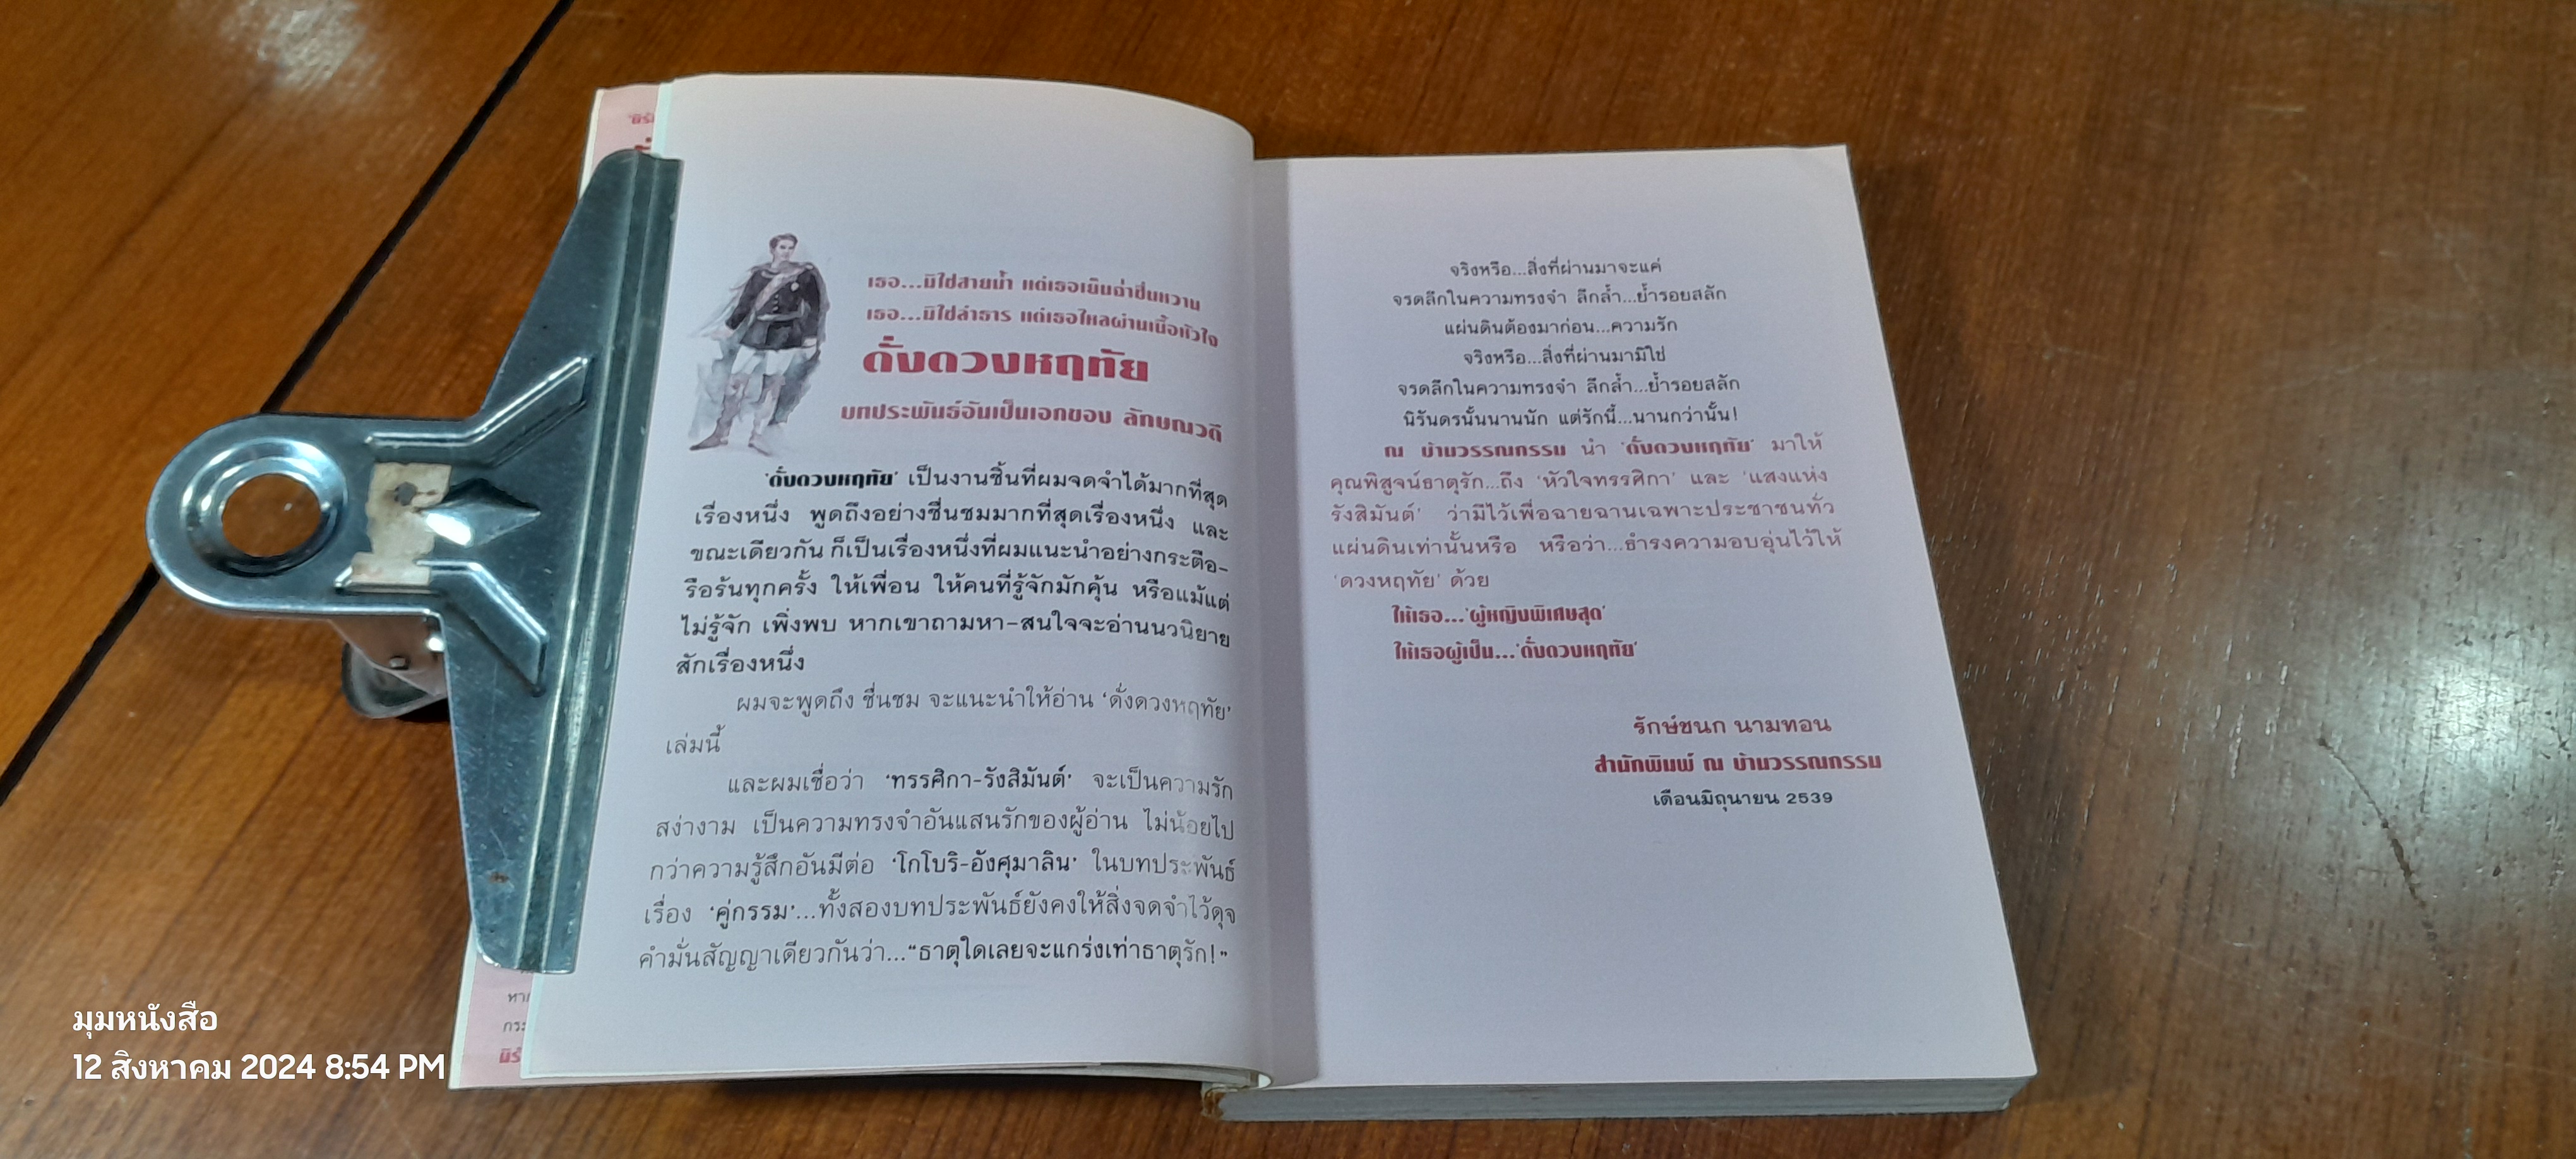 เธอ...มิใช่สายน้ำ แต่เธอเย็นฉ่ำชื่นหวาน
เธอ...มิใช่ลำธาร แต่เธอไหลผ่านเนื้อหัวใจ
ดั่งดวงหฤทัย
บทประพันธ์อันเป็นเอกของ ลักษณวดี
'ดั่งดวงหฤทัย' เป็นงานชิ้นที่ผมจดจำได้มากที่สุด
เรื่องหนึ่ง พูดถึงอย่างชื่นชมมากที่สุดเรื่องหนึ่ง และ
ขณะเดียวกัน ก็เป็นเรื่องหนึ่งที่ผมแนะนำอย่างกระตือ-
รือร้นทุกครั้ง ให้เพื่อน ให้คนที่รู้จักมักคุ้น หรือแม้แต่
ไม่รู้จัก เพิ่งพบ หากเขาถามหา-สนใจจะอ่านนวนิยาย
สักเรื่องหนึ่ง
ผมจะพูดถึง ชื่นชม จะแนะนำให้อ่าน 'ดั่งดวงหฤทัย'
เล่มนี้
และผมเชื่อว่า 'ทรรศิกา-รังสิมันต์' จะเป็นความรัก
สง่างาม เป็นความทรงจำอันแสนรักของผู้อ่าน ไม่น้อยไป
กว่าความรู้สึกอันมีต่อ 'โกโบริ-อังศุมาลิน' ในบทประพันธ์
เรื่อง 'คู่กรรม'...ทั้งสองบทประพันธ์ยังคงให้สิ่งจดจำไว้ดุจ
คำมั่นสัญญาเดียวกันว่า..."ธาตุใดเลยจะแกร่งเท่าธาตุรัก!"
จริงหรือ...สิ่งที่ผ่านมาจะแค่
จรดลึกในความทรงจำ ลึกล้ำ...ย้ำรอยสลัก
แผ่นดินต้องมาก่อน...ความรัก
จริงหรือ...สิ่งที่ผ่านมามิใช่
จรดลึกในความทรงจำ ลึกล้ำ...ย้ำรอยสลัก
นิรันดรนั้นนานนัก แต่รักนี้...นานกว่านั้น!
ณ บ้านวรรณกรรม นำ 'ดั่งดวงหฤทัย' มาให้
คุณพิสูจน์ธาตุรัก...ถึง 'หัวใจทรรศิกา' และ 'แสงแห่ง
รังสิมันต์' ว่ามีไว้เพื่อฉายฉานเฉพาะประชาชนทั่ว
แผ่นดินเท่านั้นหรือ หรือว่า...ธำรงความอบอุ่นไว้ให้
'ดวงหฤทัย' ด้วย
ให้เธอ...'ผู้หญิงพิเศษสุด'
ให้เธอผู้เป็น...'ดั่งดวงหฤทัย'
รักษ์ชนก นามทอน
สำนักพิมพ์ ณ บ้านวรรณกรรม
เดือนมิถุนายน 2539
มุมหนังสือ
12 สิงหาคม 2024 8:54 PM